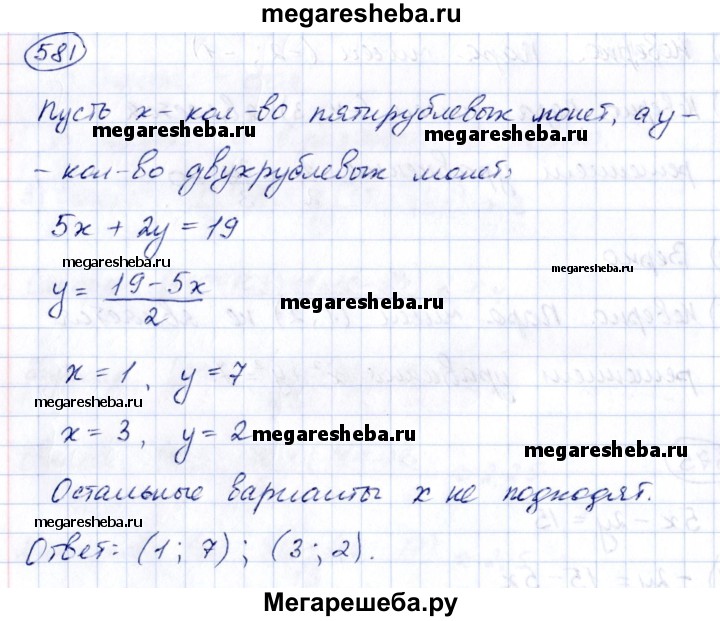 megaresheba.ru
581
Пусть x - кол-во пятирублевых монет, а y -
megaresheba.ru
megaresheba.ru
- кол-во двухрублевых монет:
5x + 2y = 19
megaresheba.ru
megaresheba.ru
y = (19 - 5x)/2
megaresheba.ru
x = 1, y = 7
megaresheba.ru
x = 3, y = 2
megaresheba.ru
megaresheba.ru
Остальные варианты x не подходят.
megaresheba.ru
Ответ: (1; 7); (3; 2).
megaresheba.ru
Мегарешеба.ру